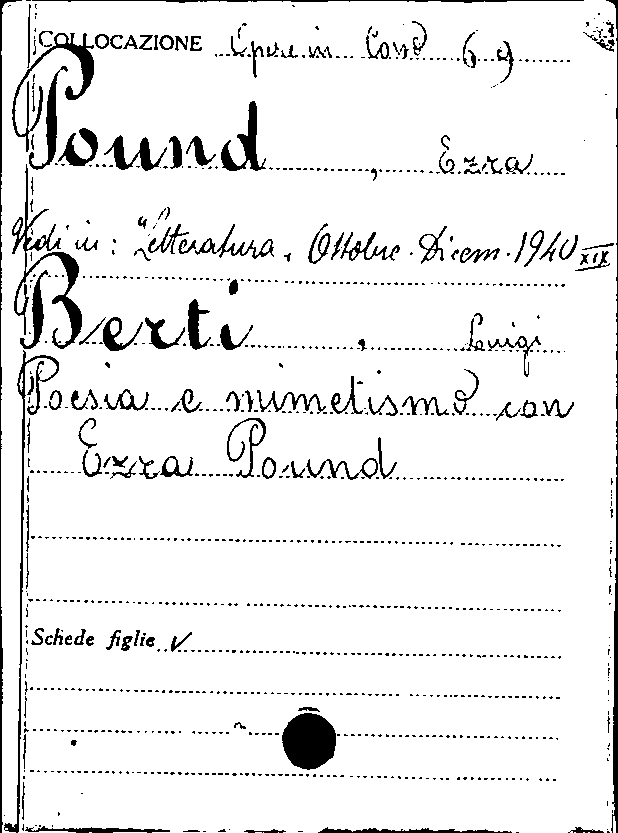 COLLOCAZIONE Opere in Corso 69
Pound, Ezra
Vedi in: "Letteratura, Ottobre-Dicem. 1940 XIX
Berti, Luigi
Poesia e mimetismo con
Ezra Pound
Schede figlie ✓